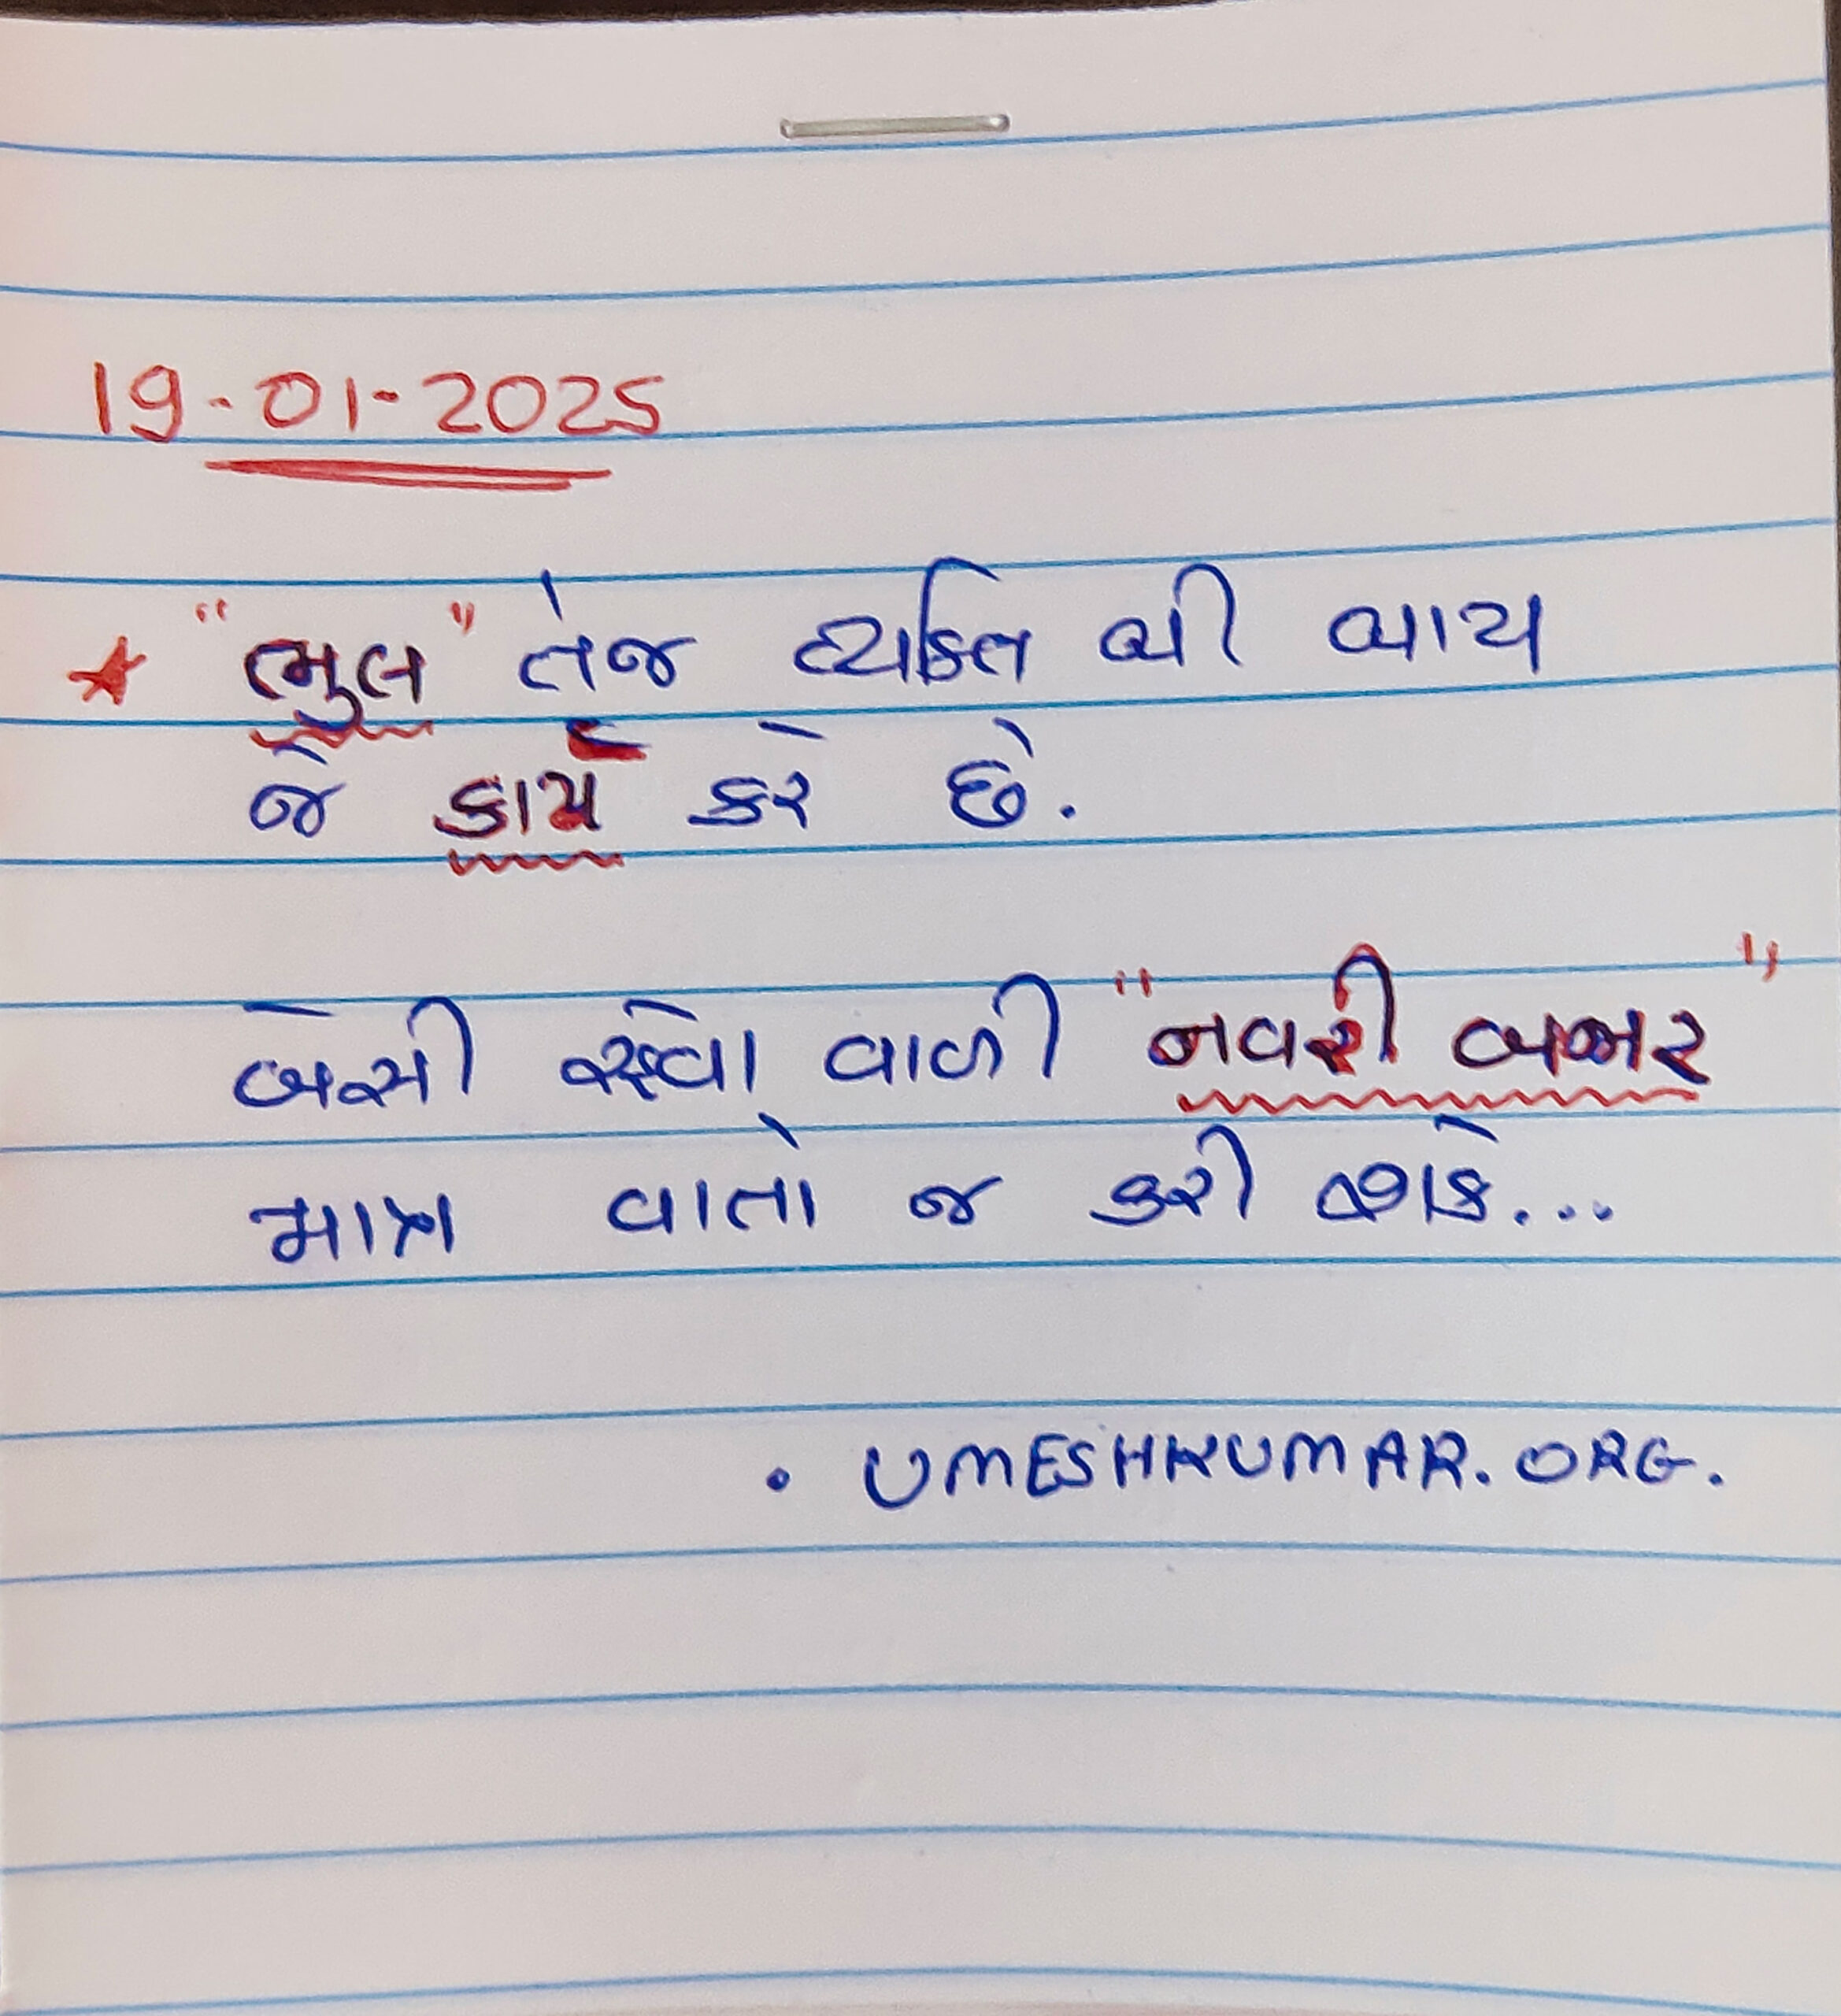 19-01-2025
★ "ભુલ" તેજ વ્યક્તિ થી થાય
જે કાર્ય કરે છે.
બેસી રહેવા વાળી "નવરી બજાર"
માત્ર વાતો જ કરી શકે...
. UMESHKUMAR.ORG.